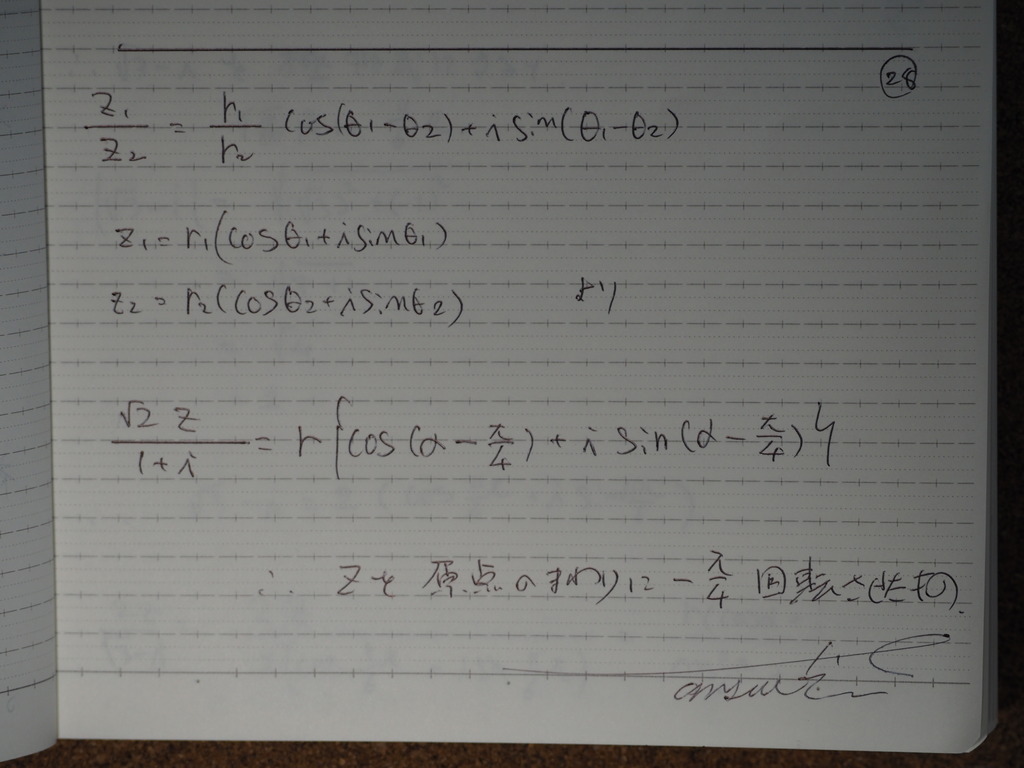 ㉘
z₁/z₂ = r₁/r₂ cos(θ₁-θ₂)+i sin(θ₁-θ₂)
z₁=r₁(cosθ₁+i sinθ₁)
z₂=r₂(cosθ₂+i sinθ₂) より
√2 z/1+i = r{cos(α-π/4)+i sin(α-π/4)}
∴ zを原点のまわりに-π/4 回転させたもの.